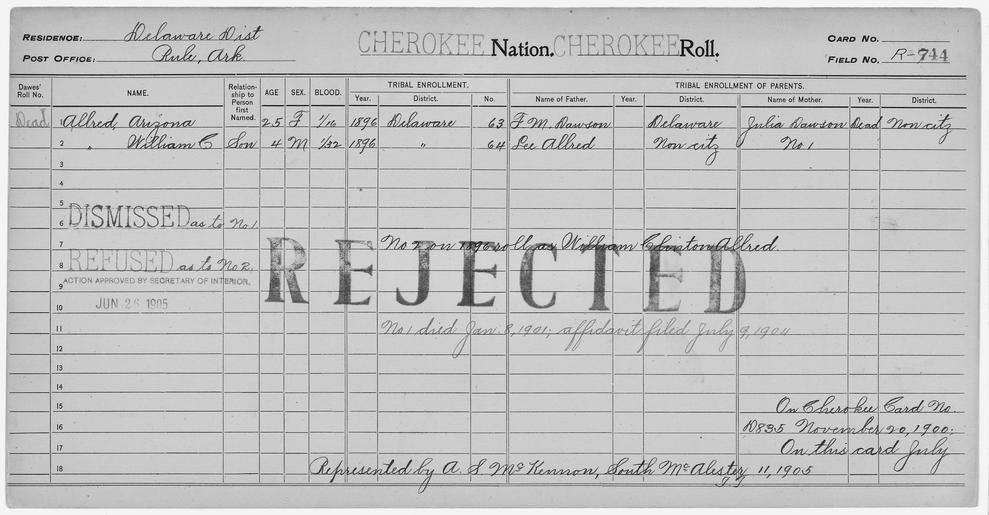 RESIDENCE: Delaware Dist
POST OFFICE: Rule, Ark.
CHEROKEE Nation. CHEROKEE Roll.
CARD NO.
FIELD NO. R-744
Dawes' Roll No. NAME. Relationship to Person first Named. AGE SEX. BLOOD. TRIBAL ENROLLMENT. TRIBAL ENROLLMENT OF PARENTS.
Year. District. No. Name of Father. Year. District. Name of Mother. Year. District.
Dead 1 Allred, Arizona 25 F 1/16 1896 Delaware 63 F M. Dawson Delaware Julia Dawson Dead Non citz
2 " William C Son 4 M 1/32 1896 " 64 Lee Allred Non citz No 1
3
4
5
6 DISMISSED as to No 1.
7 No 2 on 1896 roll as William Clinton Allred.
REJECTED
8 REFUSED as to No 2.
9 ACTION APPROVED BY SECRETARY OF INTERIOR.
10 JUN 26 1905
11 No 1 died Jan. 8, 1901; affidavit filed July 9, 1904
12
13
14
15 On Cherokee Card No.
16 D835 November 20, 1900.
17 On this card July
18 Represented by A. S. McKennon, South McAlester 11, 1905
I. T.